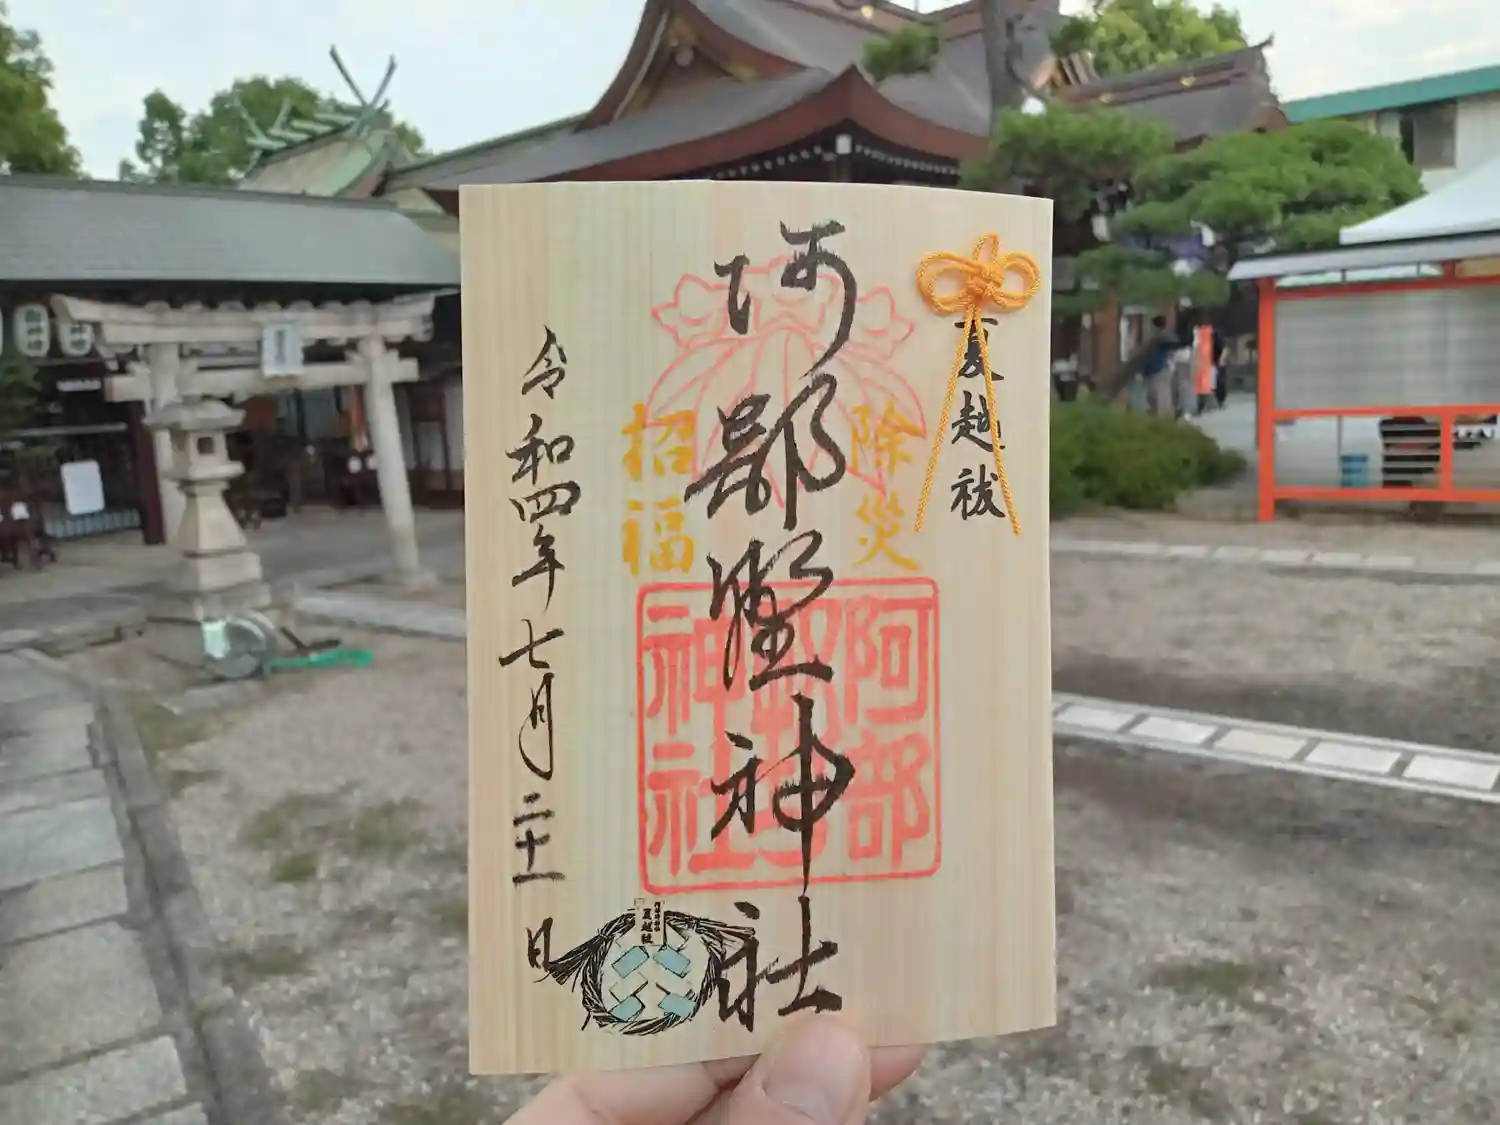 夏越祓
除災
招福
阿部野神社
阿部野神社
令和四年七月二十一日
夏越祓